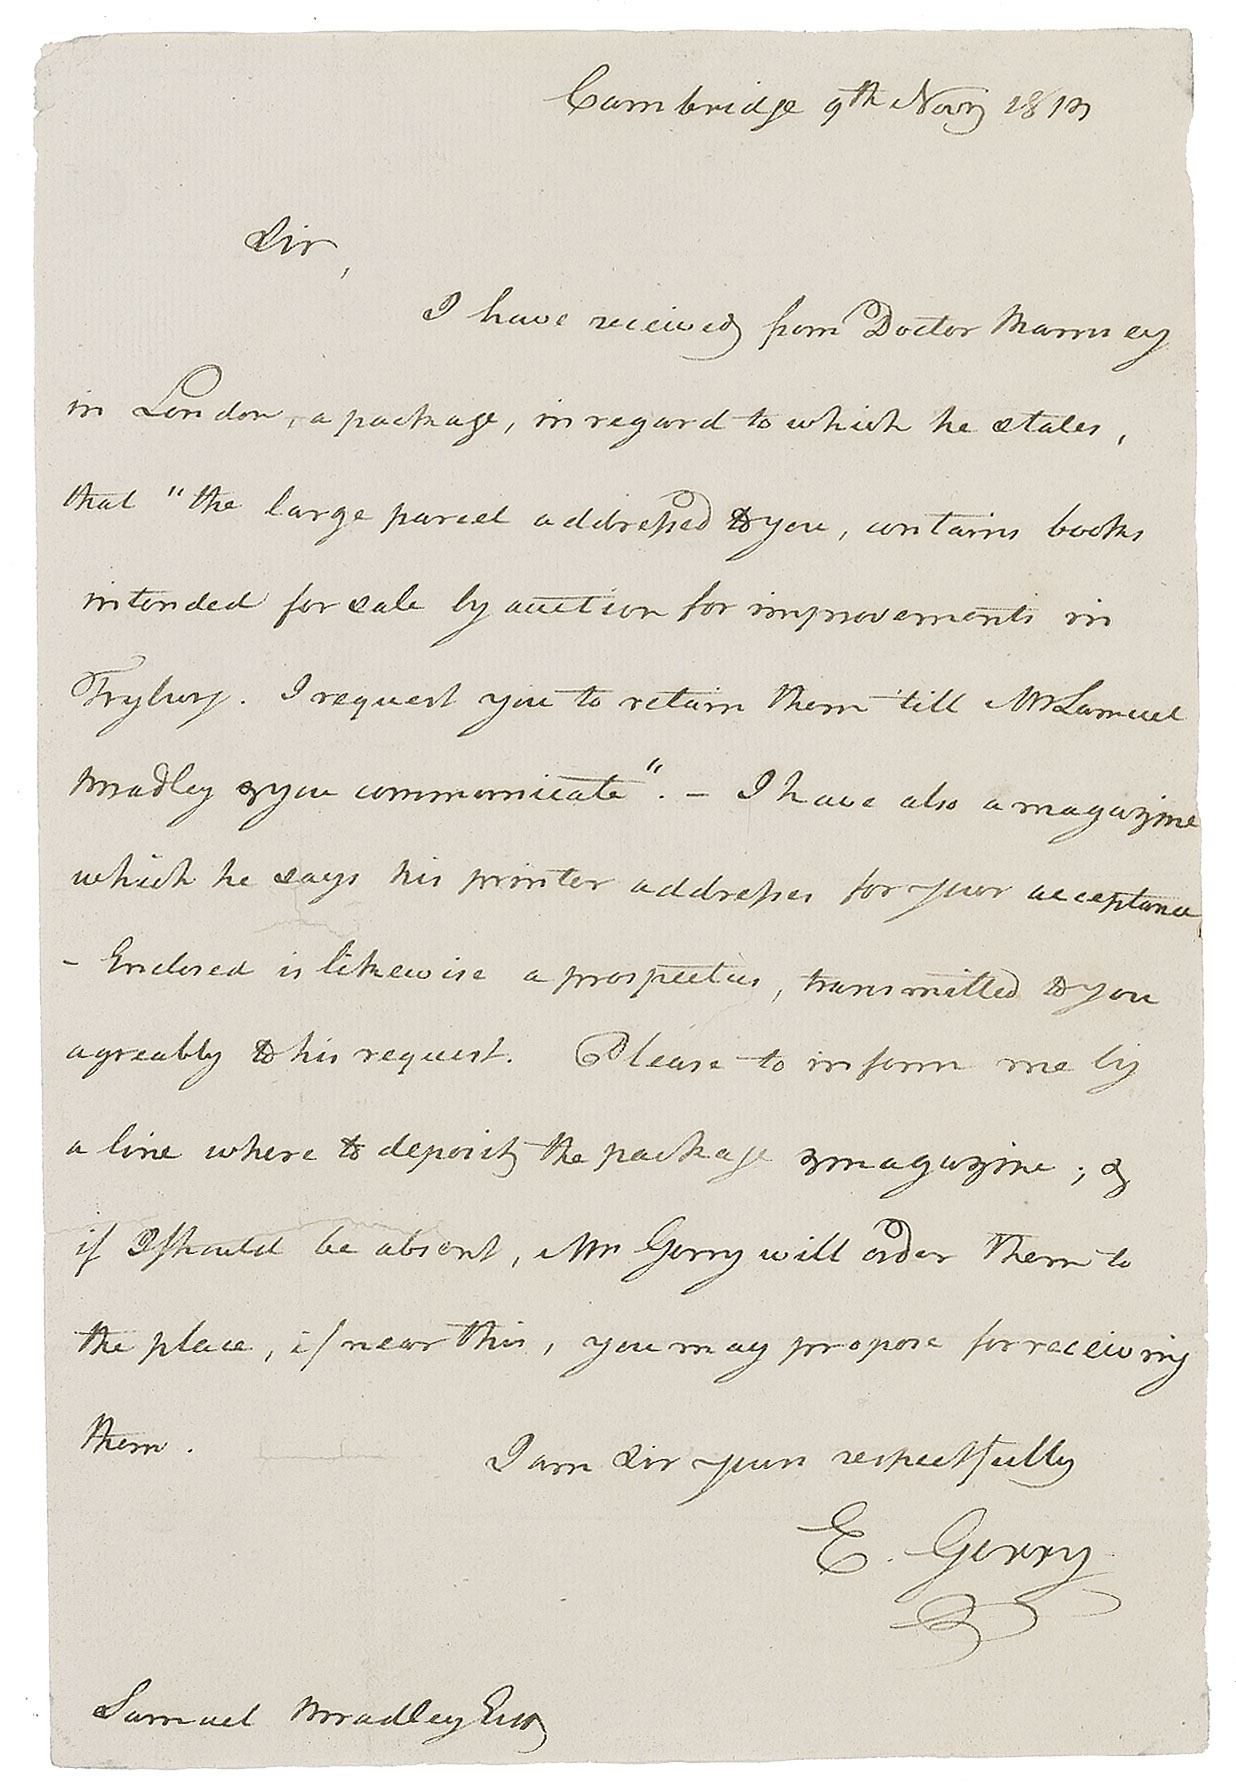 Cambridge 9th Novr
Sir,
I have received from Doctor
in London, a package, in regard to which he states,
that "the large parcel addressed to you, contains books
intended for sale by auction for improvements in
Fryburg. I request you to retain them till Mr Samuel
Bradley & you communicate". – I have also a magazine
which he says his printer addresses for your acceptance
– Enclosed is likewise a prospectus, transmitted to you
agreably to his request. Please to inform me by
a line where to deposit the package & magazine; &
if I should be absent, Mrs Gerry will order them to
the place, if near this, you may propose for receiving
them.
I am Sir yours respectfully
E. Gerry
Samuel Bradley Esqr